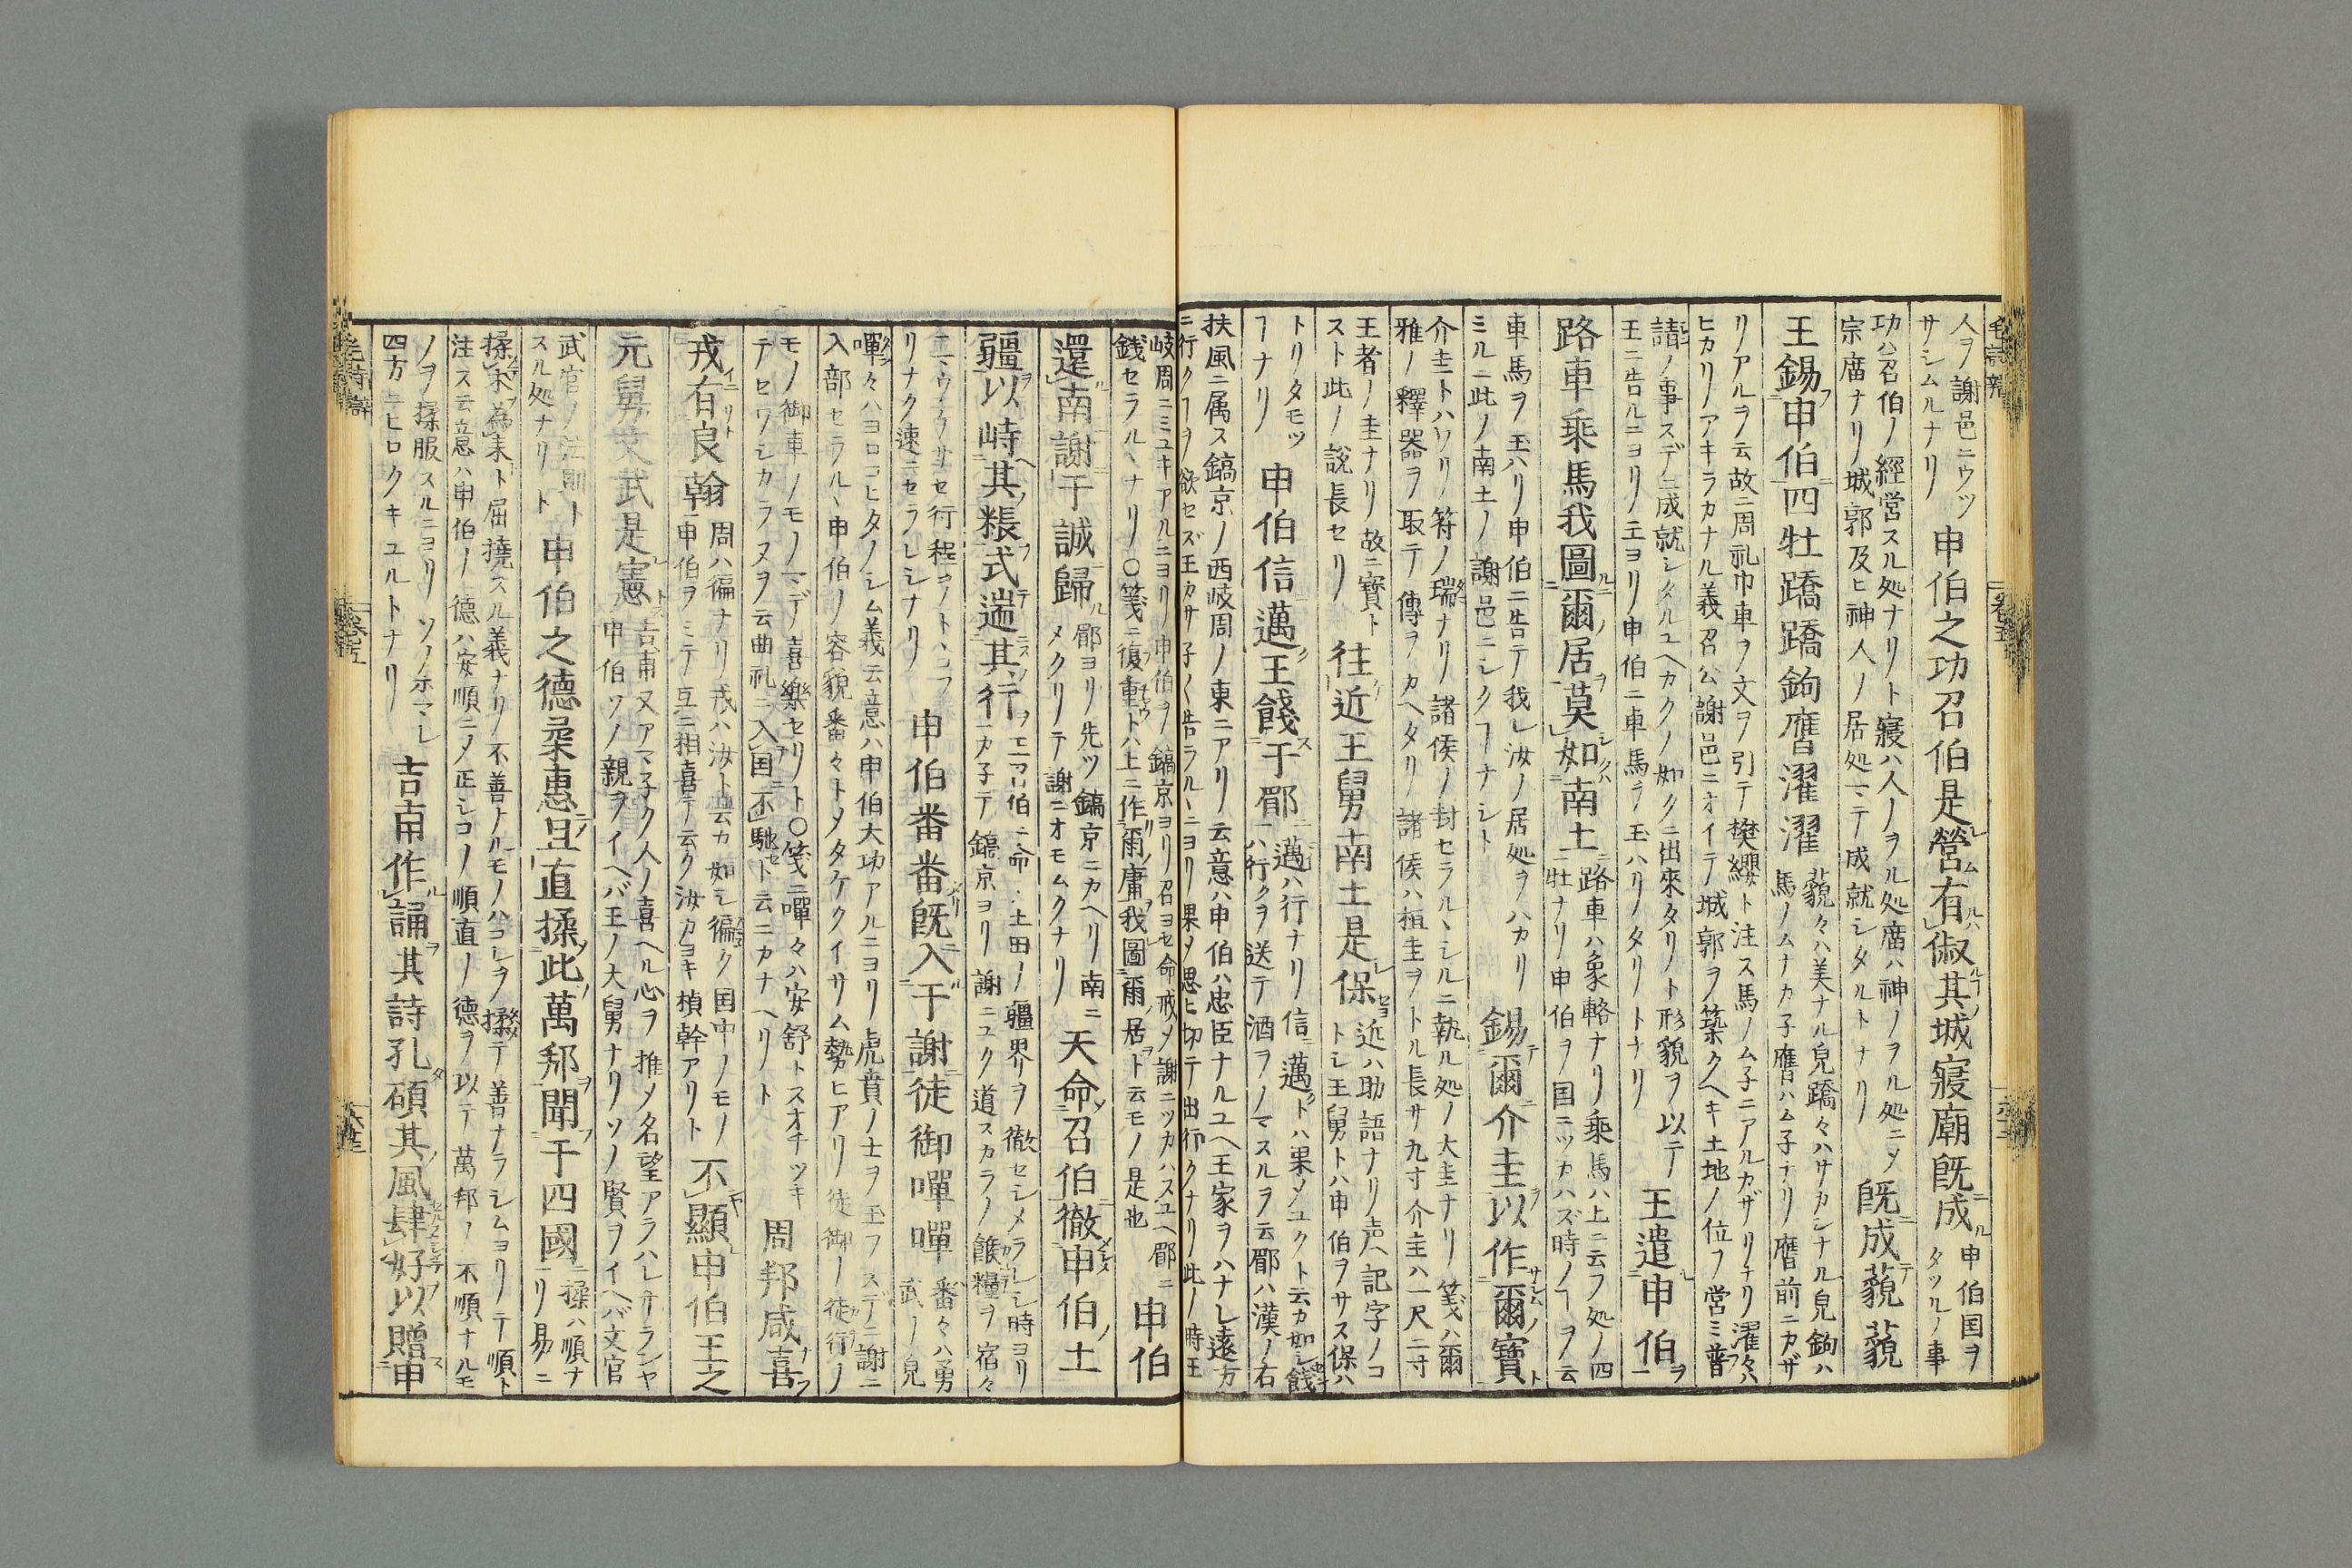 人ヲ謝邑ニウツ
サシムルナリ
申伯之功召伯是營有俶其城寢廟既成
申伯国ヲ
タツルノ事
功ハ召伯ノ經営スル処ナリト寢ハ人ノヲル処庿ハ神ノヲル処ニメ
宗庿ナリ城郭及ヒ神人ノ居処マテ成就シタルトナリ
既成藐藐
王錫申伯四牡蹻蹻鉤膺濯濯
藐々ハ美ナル皃蹻々ハサカンナル皃鉤ハ
馬ノムナカ子膺ハム子ナリ膺前ニカザ
リアルヲ云故ニ周礼巾車ヲ文ヲ引テ樊纓ト注ス馬ノム子ニアルカザリナリ濯々ハ
ヒカリノアキラカナル義召公謝邑ニオイテ城郭ヲ築クヘキ土地ノ位ヲ営ミ普
請ノ事スデニ成就シタルユヘカクノ如クニ出來タリト形貌ヲ以テ
王ニ告ルニヨリノ王ヨリ申伯ニ車馬ヲ玉ハリノタリトナリ
王遣申伯
路車乘馬我圖爾居莫如南土
路車ハ象輅ナリ乘馬ハ上ニ云フ処ノ四
牡ナリ申伯ヲ国ニツカハズ時ノヿヲ云
車馬ヲ玉ハリ申伯ニ告テ我レ汝ノ居処ヲハカリ
ミルニ此ノ南土ノ謝邑ニシクヿナシト
錫爾介圭以作爾寶
介圭トハワリ符ノ瑞ナリ諸侯ノ封セラルヽシルニ執ル処ノ大圭ナリ箋ハ爾
雅ノ釋器ヲ取テ傳ヲカヘタリ諸侯ハ桓圭ヲトル長サ九寸介圭ハ一尺二寸
王者ノ圭ナリ故ニ寶ト
スト此ノ説長セリ
往近王舅南土是保
近ハ助語ナリ声ヘ記字ノコ
トシ王舅トハ申伯ヲサス保ハ
トリタモツ
ヿナリ
申伯信邁王餞于郿
邁ハ行ナリ信邁トハ果メユクト云カ如シ餞
ハ行クヲ送テ酒ヲノマスルヲ云郿ハ漢ノ右
扶風ニ属ス鎬京ノ西岐周ノ東ニアリ云意ハ申伯ハ忠臣ナルユヘ王家ヲハナレ遠方
ニ行クヿヲ欲セズ王カサ子〱告ラルヽニヨリ果メ思ヒ切テ出行クナリ此ノ時王
岐周ニミユキアルニヨリ申伯ヲ鎬京ヨリ召ヨセ命戒メ謝ニツカハスユヘ郿ニ
餞セラルヽナリ〇箋ニ復重トハ上ニ作爾庸我圖爾居ト云モノ是也
申伯
還南謝于誠歸
郿ヨリ先ツ鎬京ニカヘリ南ニ
メクリテ謝ニオモムクナリ
天命召伯徹申伯土
疆以峙其粻式遄其行
王召伯ニ命土田ノ疆界ヲ徹セシメラレシ時ヨリ
カ子テ鎬京ヨリ謝ニユク道スカラノ餱糧ヲ宿々
ニマウケサセ行程ヲノトヽコフ
リナク速ニセラレシナリ
申伯番番既入于謝徒御嘽嘽
番々ハ勇
武ノ皃
嘽々ハヨロコヒタノシム義云意ハ申伯大功アルニヨリ虎賁ノ士ヲ玉フスデニ謝ニ
入部セラルヽ申伯ノ容貌番々トメタケクイサム勢ヒアリ徒御ノ徒行ノ
モノ御車ノモノマデ喜樂セリト〇箋ニ嘽々ハ安舒トスオチツキ
テセワシカラヌヲ云曲礼ニ入国不馳ト云ニカナヘリト
周邦咸喜
戎有良翰
周ハ徧ナリ戎ハ汝ト云カ如シ徧ク国中ノモノ
申伯ヲミテ互ニ相喜テ云ク汝カヨキ楨幹アリト
不顯申伯王之
元舅文武是憲
吉甫又アマ子ク人ノ喜ヘル心ヲ推メ名望アラハレサランヤ
申伯ソノ親ヲイヘバ王ノ大舅ナリソノ賢ヲイヘバ文官
武官ノ法則ト
スル処ナリト
申伯之德柔惠且直揉此萬邦聞于四國
揉ハ順ナ
リ易ニ
揉木為耒ト屈撓スル義ナリ不善ナルモノハコレヲ揉テ善ナラシムヨリノテ順ト
注ス云意ハ申伯ノ德ハ安順ニメ正シコノ順直ノ德ヲ以テ萬邦ノ不順ナルモ
ノヲ揉服スルニヨリソノホマレ
四方ニヒロクキユルトナリ
吉甫作誦其詩孔碩其風肆好以贈申